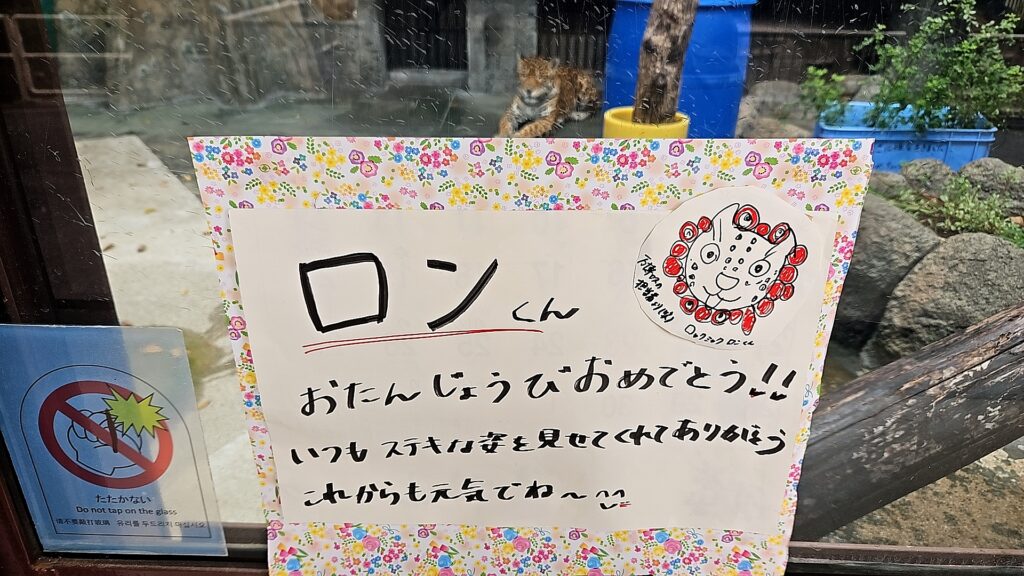 ロンくん
おたんじょうびおめでとう!!
いつもステキな姿を見せてくれてありがとう
これからも元気でね〜
たたかない
Do not tap on the glass
请不要敲打玻璃 유리를 두드리지 마십시오